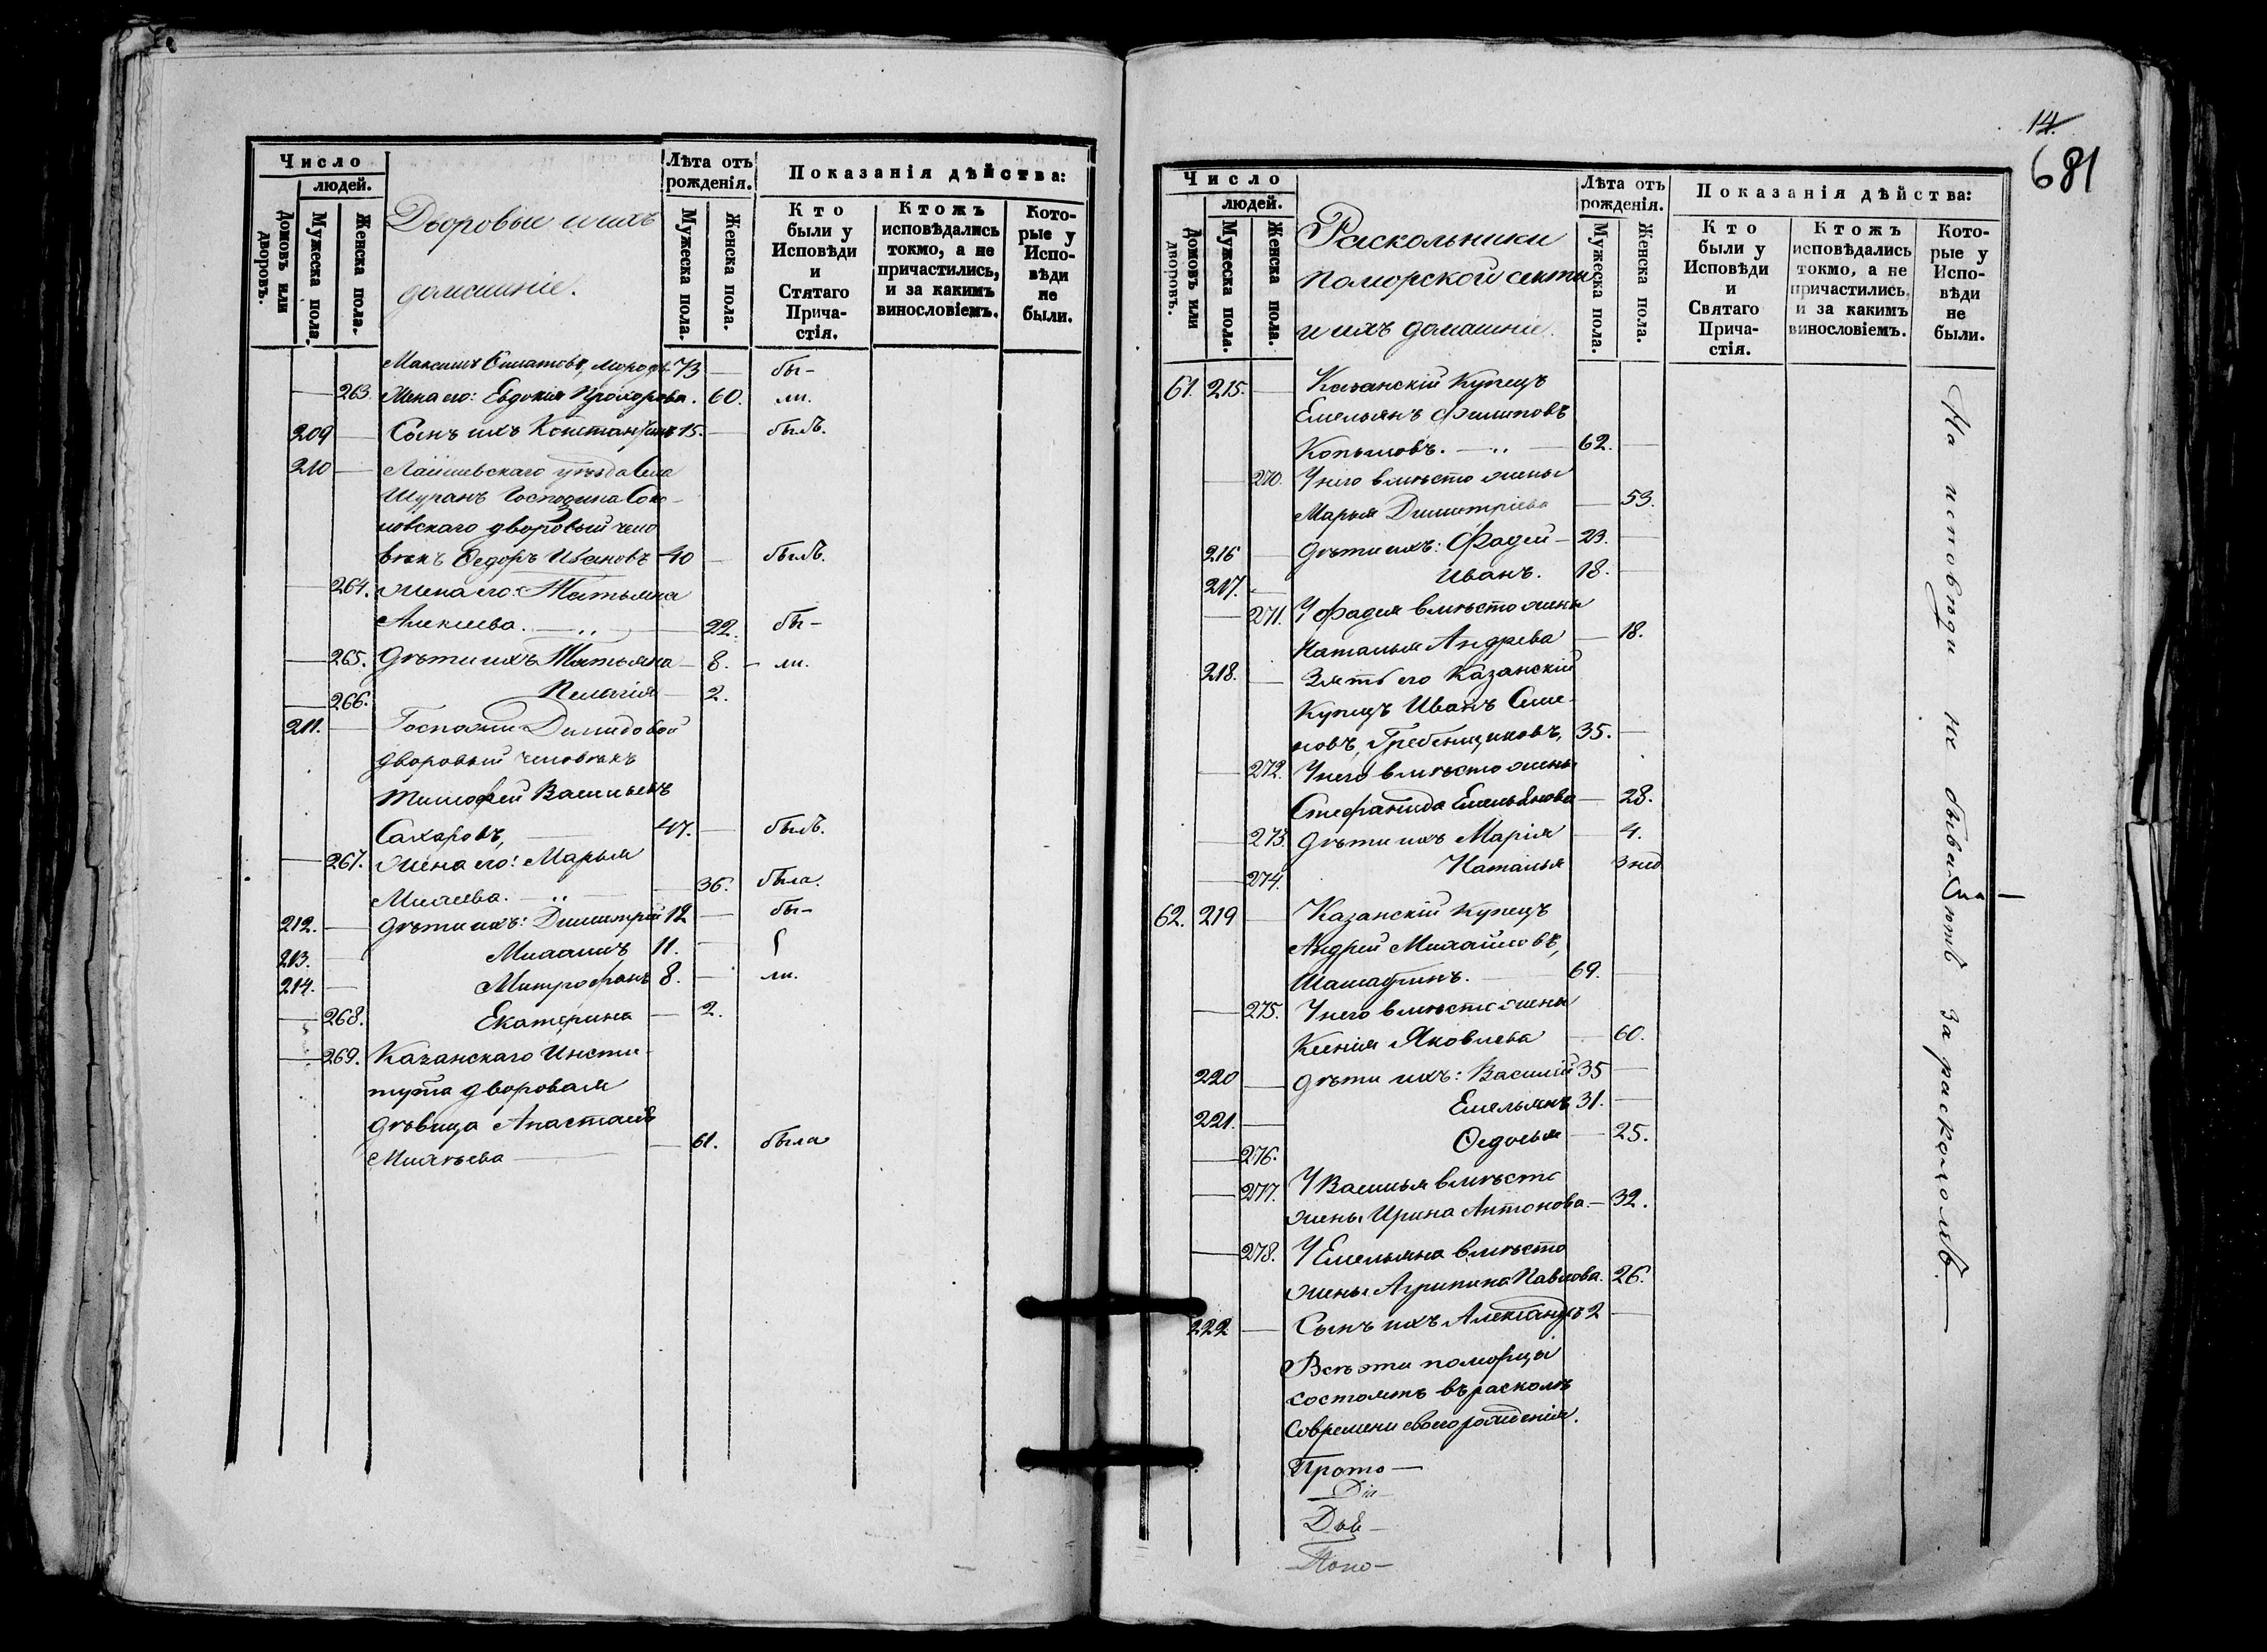 Число
людей.
Домовъ или дворовъ.
Мужеска пола.
Женска пола.
Дворовые и ихъ
домашніе.
Лѣта отъ рожденія.
Мужеска пола.
Женска пола.
Показанія дѣйства:
Кто были у Исповѣди и Стятаго Прича-стія.
Ктожъ исповѣдались токмо, а не причастились, и за какимъ винословіемъ.
Кото-рые у Испо-вѣди не были.
Максимъ 73 — бы-
— 263. Жена его: Евдокія Прохорова. 60. ли.
209 — Сынъ ихъ Константинъ 15. — былъ.
210 — Лаишевскаго уѣзда Села
Шуранъ Господина Соко-
ловскаго дворовый чело
вѣкъ Ѳедоръ Ивановъ 40 — былъ.
— 264. Жена его: Татьяна
Алексѣева. — „ — 22. бы-
— 265. Дѣти ихъ Татьяна — 8. - ли.
— 266. Пелагія — 2.
211. — Госпожи Демидовой
дворовый человѣкъ
Тимофей Васильевъ
Сахаровъ, — 47. — былъ.
— 267. Жена его: Марья
— „ — 36. была.
212. — Дѣти ихъ: Димитрій 12 — бы-
213. — Михаилъ 11. —
214. — Митрофанъ 8. — ли.
— 268. Екатерина — 2.
— 269. Казанскаго Инсти-
тута дворовая
дѣвица Анастасія
— 61. была
14.
681
Число
людей.
Домовъ или дворовъ.
Мужеска пола.
Женска пола.
Раскольники
поморской секты
и ихъ домашніе.
Лѣта отъ рожденія.
Мужеска пола.
Женска пола.
Показанія дѣйства:
Кто были у Исповѣди и Святаго Прича-стія.
Ктожъ исповѣдались токмо, а не причастились, и за какимъ винословіемъ.
Кото-рые у Испо-вѣди не были.
61. 215. — Казанскій Купецъ
Емельянъ Филиповъ
Копыловъ. — „ — 62. —
— 270. У него вмѣсто жены
Марья Димитріева — 53.
216 — Дѣти ихъ: Фадей — 23. —
217. — Иванъ. 18. —
— 271. У Фадея вмѣсто жены
Наталья Андреева — 18.
218. — Зять его Казанскій
Купецъ Иванъ Семе-
новъ, Гребенщиковъ, 35. —
— 272. У него вмѣсто жены
Стефанида Емельянова — 28.
— 273. Дѣти ихъ Марія — 4.
— 274. Наталья 3 нед.
62. 219 — Казанскій Купецъ
Андрей Михайловъ,
Шашабринъ. — 69. —
— 275. У него вмѣсто жены
Ксенія Яковлева — 60.
220 — Дѣти ихъ: Василій 35 —
221. — Емельянъ 31. —
— 276. Ѳедосья — 25.
— 277. У Василья вмѣсто
жены Ирина Антонова. — 32.
— 278. У Емельяна вмѣсто
жены Агрипина Павлова. 26.
222 — Сынъ ихъ Александръ 2 —
Всѣ эти поморцы
состоятъ въ расколѣ
со времени своего рожденія.
На исповѣди не бываютъ за расколомъ.
Прото —
Діа —
Поно —